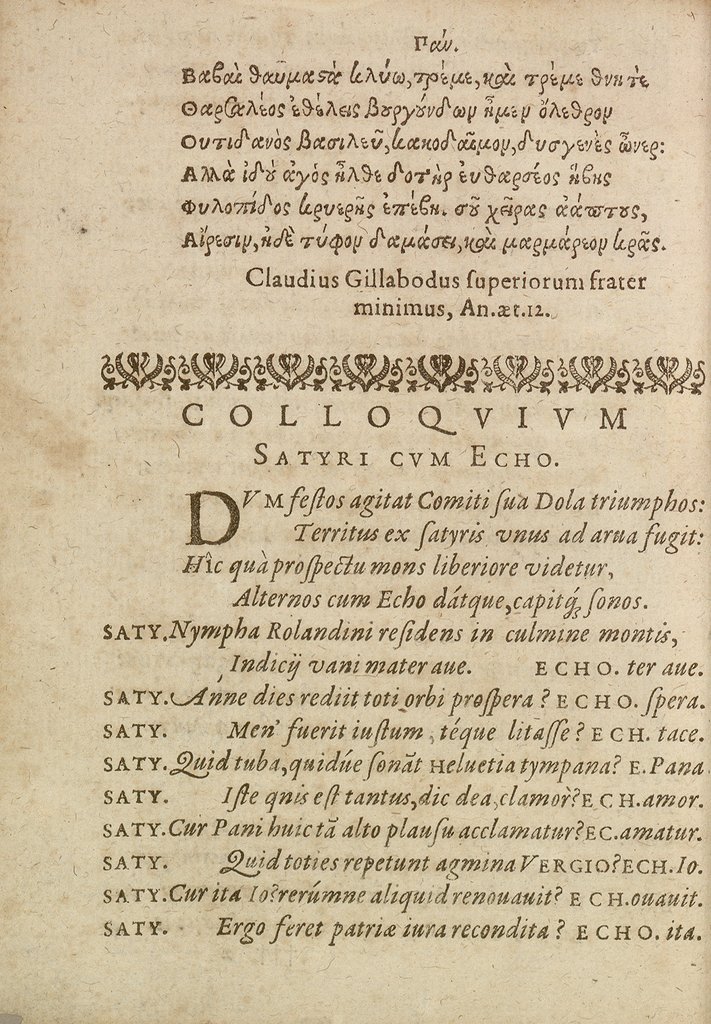 Πάν.
Βαβαὶ θαύματὰ κλύω, τρέμε, καὶ τρέμε θνητὲ
Θαρσαλέος ἐθέλεις Βυργύνδων ἦμεν ὄλεθρον
Ουτιδανὸς βασιλεῦ, κακοδαῖμον, δυσγενὲς ὦνερ:
Αλλὰ ἰδοὺ ἀγὸς ἦλθε δοτὴρ ἐυθαρσέος ἥβης
Φυλοπίδος κρυερῆς ἐπέβη. σοῦ χεῖρας ἀάπτους,
Αἵρεσιν, ἠδὲ τύφον δαμάσει, καὶ μαρμάρεον κρᾶς.
Claudius Gillabodus ſuperiorum frater
minimus, An. æt. 12.
COLLOQVIVM
SATYRI CVM ECHO.
DVM feſtos agitat Comiti ſua Dola triumphos:
Territus ex ſatyris vnus ad arua fugit:
Hîc quà proſpectu mons liberiore videtur,
Alternos cum Echo dátque, capitq́; ſonos.
SATY. Nympha Rolandini reſidens in culmine montis,
Indicij vani mater aue. ECHO. ter aue.
SATY. Anne dies rediit toti orbi proſpera? ECHO. ſpera.
SATY. Men' fuerit iuſtum, téque litaſſe? ECH. tace.
SATY. Quid tuba, quidúe ſonāt Heluetia tympana? E. Pana
SATY. Iſte qnis eſt tantus, dic dea, clamor? ECH. amor.
SATY. Cur Pani huic tā alto plauſu acclamatur? EC. amatur.
SATY. Quid toties repetunt agmina VERGIO? ECH. Io.
SATY. Cur ita Io? rerúmne aliquid renouauit? ECH. ouauit.
SATY. Ergo feret patriæ iura recondita? ECHO. ita.